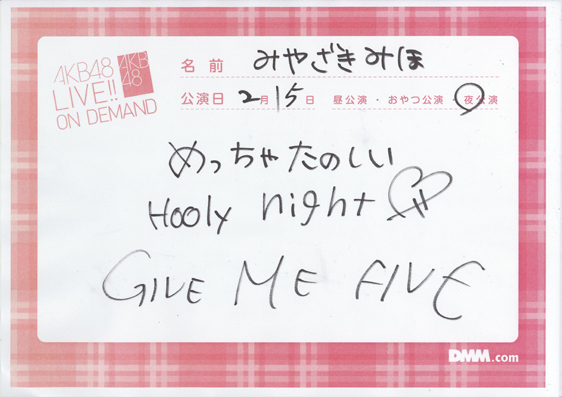 AKB48
LIVE!!
ON DEMAND
AKB
48
名前 みやざきみほ
公演日 2月15日 昼公演・おやつ公演・夜公演
めっちゃたのしい
Hooly night
GIVE ME FIVE
DMM.com